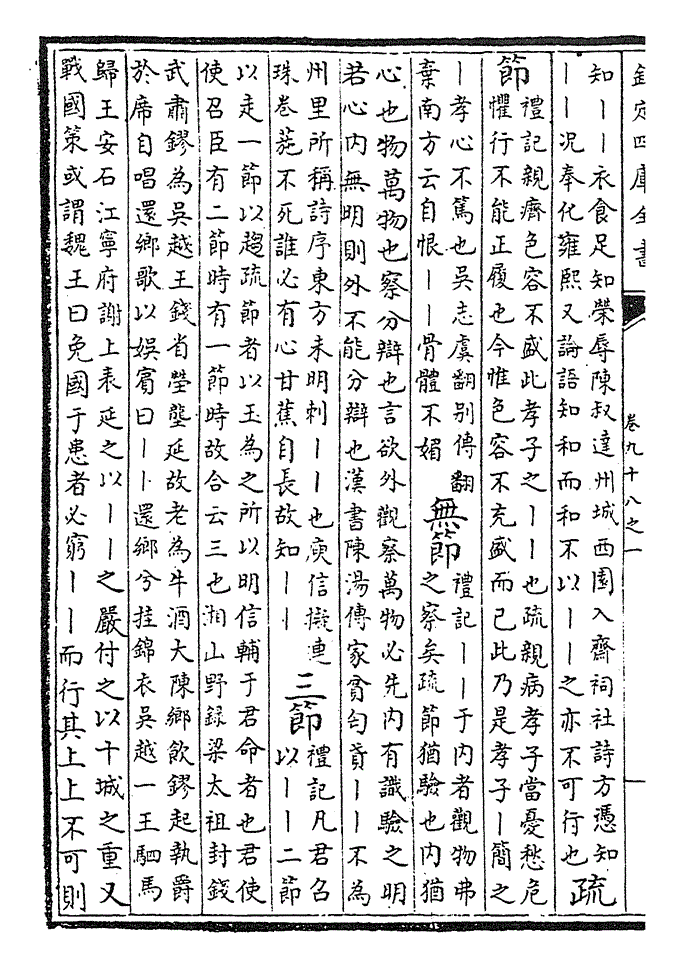 欽定四庫全書
卷九十八之一
知丨丨衣食足知榮辱陳叔達州城西園入齋祠社詩方憑知
丨丨况奉化雍熙又論語知和而和不以丨丨之亦不可行也
疏
節
禮記親癠色容不盛此孝子之丨丨也疏親病孝子當憂愁危
懼行不能正履也今惟色容不充盛而已此乃是孝子丨簡之
丨孝心不篤也吳志虞翻别傳翻
棄南方云自恨丨丨骨體不媚
無節
禮記丨丨于内者觀物弗
之察矣疏節猶驗也内猶
心也物萬物也察分辯也言欲外觀察萬物必先内有識驗之明
若心内無明則外不能分辯也漢書陳湯傳家貧匄貣丨丨不為
州里所稱詩序東方未明刺丨丨也庾信擬連
珠卷葹不死誰必有心甘蕉自長故知丨丨
三節
禮記凡君召
以丨丨二節
以走一節以趨疏節者以玉為之所以明信輔于君命者也君使
使召臣有二節時有一節時故合云三也湘山野録梁太祖封錢
武肅鏐為吳越王錢省塋壟延故老為牛酒大陳鄉飲鏐起執爵
於席自唱還鄉歌以娱賓曰丨丨還鄉兮挂錦衣吳越一王駟馬
歸王安石江寧府謝上表延之以丨丨之嚴付之以十城之重又
戰國策或謂魏王曰免國于患者必窮丨丨而行其上上不可則